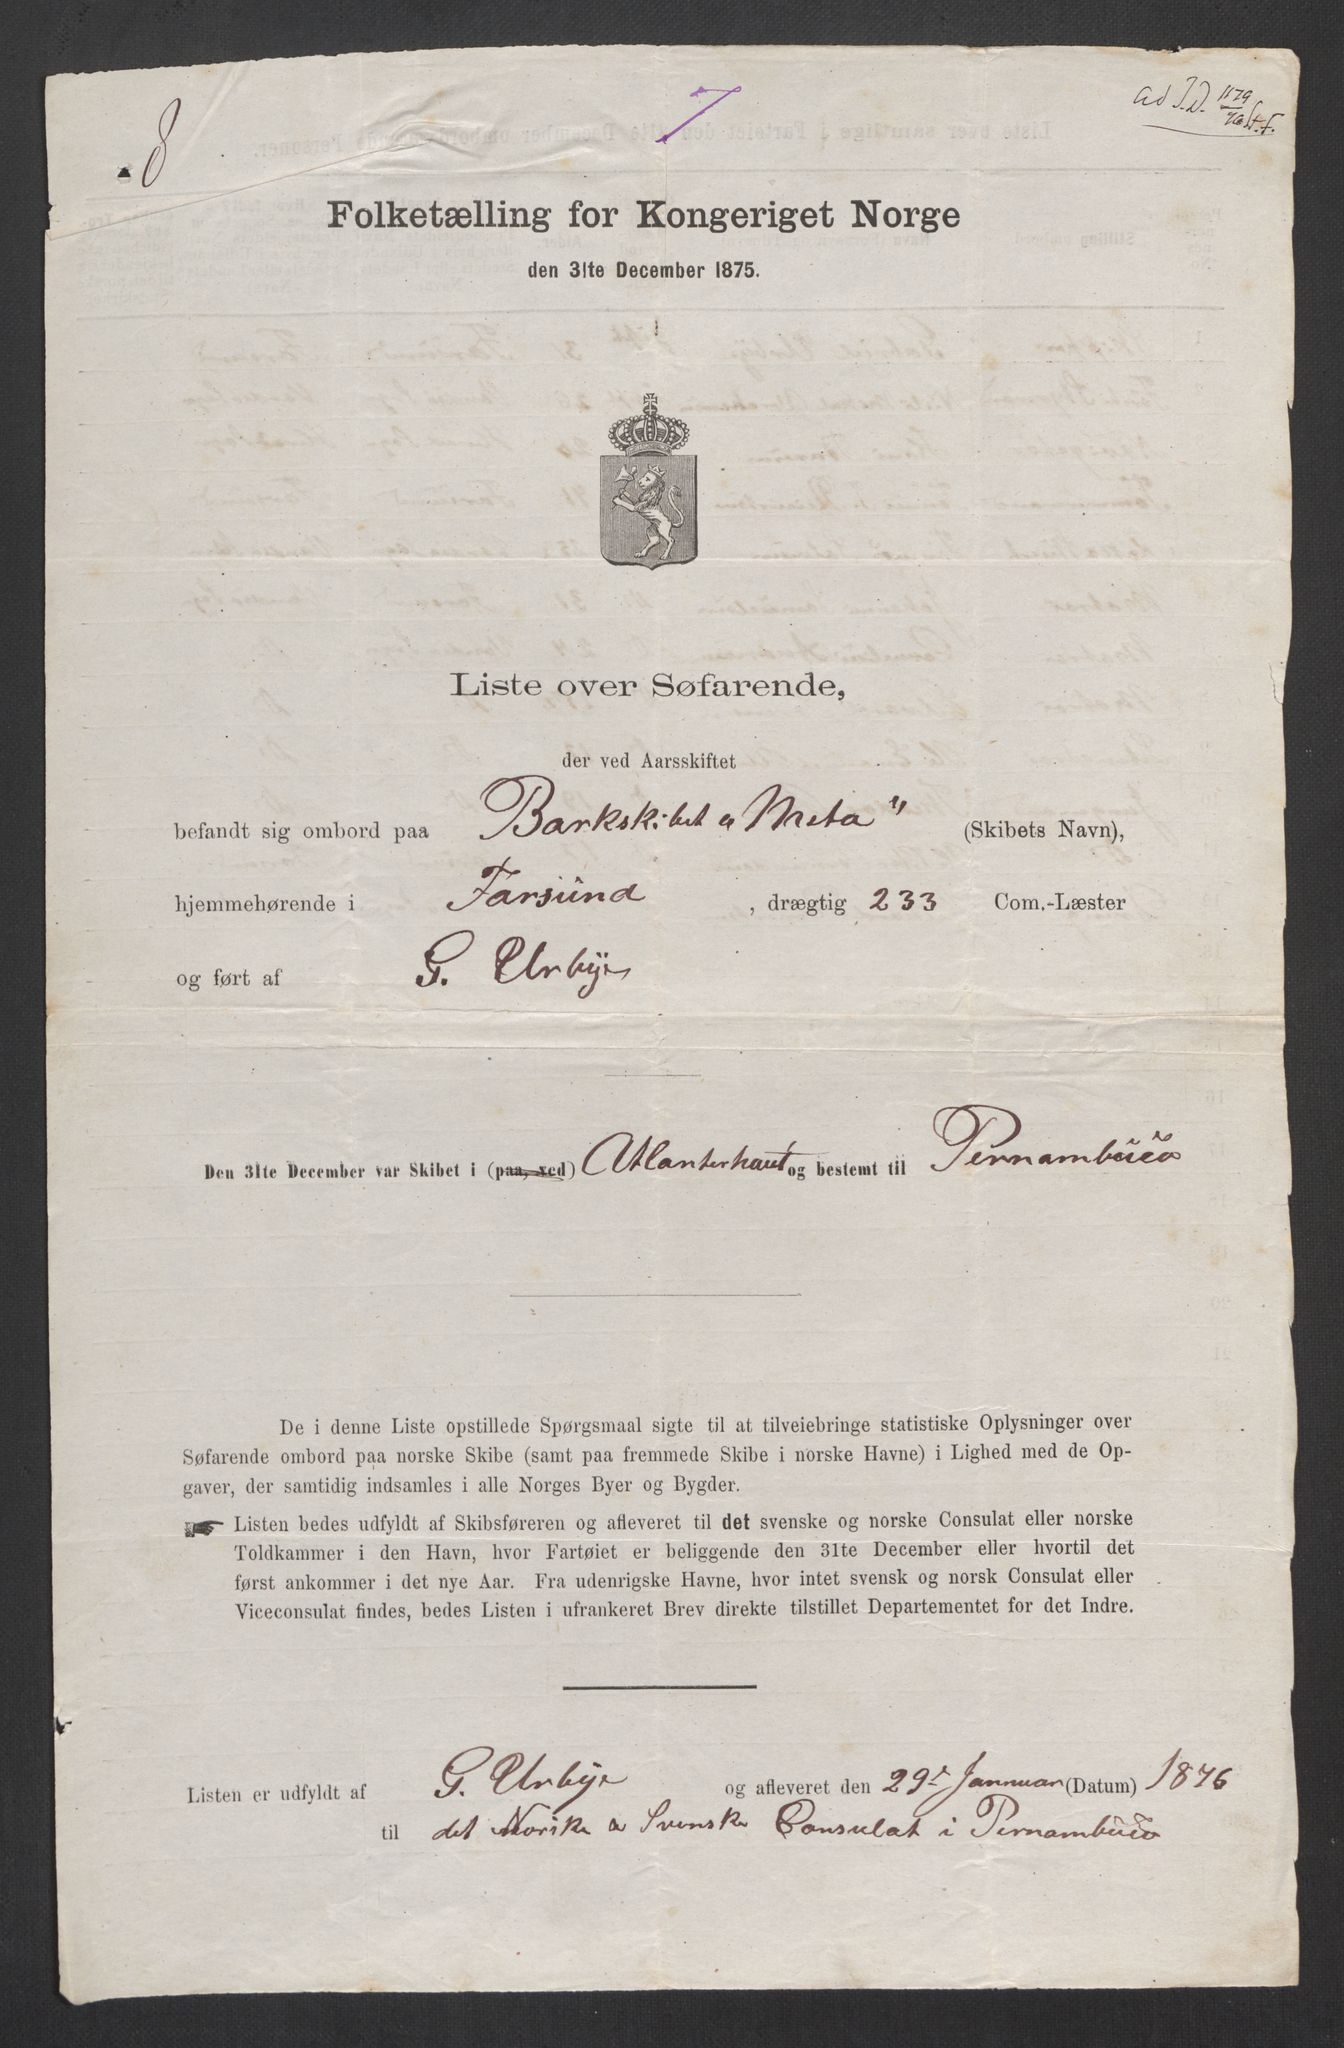 8
7
ad J.D. 1179/76 St.f.
Folketælling for Kongeriget Norge
den 31te December 1875.
Liste over Søfarende,
der ved Aarsskiftet
befandt sig ombord paa Barkskibet „Meta" (Skibets Navn),
hjemmehørende i Farsund, drægtig 233 Com.-Læster
og ført af G. Urbye
Den 31te December var Skibet i (paa, ved) Atlanterhavet og bestemt til Pernambuco
De i denne Liste opstillede Spørgsmaal sigte til at tilveiebringe statistiske Oplysninger over
Søfarende ombord paa norske Skibe (samt paa fremmede Skibe i norske Havne) i Lighed med de Op-
gaver, der samtidig indsamles i alle Norges Byer og Bygder.
☛ Listen bedes udfyldt af Skibsføreren og afleveret til det svenske og norske Consulat eller norske
Toldkammer i den Havn, hvor Fartøiet er beliggende den 31te December eller hvortil det
først ankommer i det nye Aar. Fra udenrigske Havne, hvor intet svensk og norsk Consulat eller
Viceconsulat findes, bedes Listen i ufrankeret Brev direkte tilstillet Departementet for det Indre.
Listen er udfyldt af G. Urbye og afleveret den 29de Januar (Datum) 1876
til det Norske & Svenske Consulat i Pernambuco